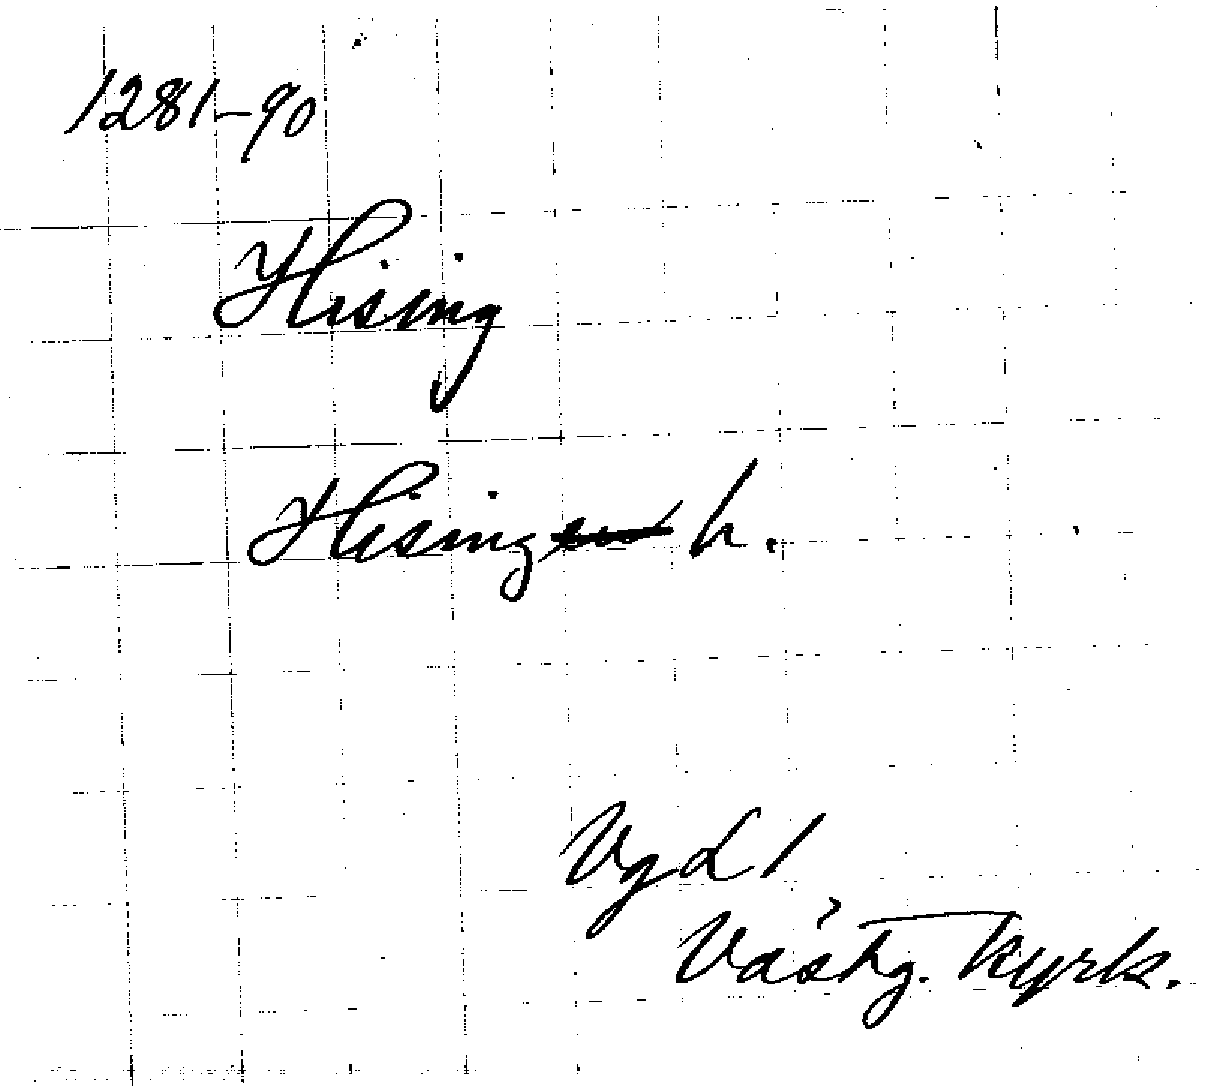 1281-90
Hising
Hising h.
VgL 1
Västg. Kyrk.